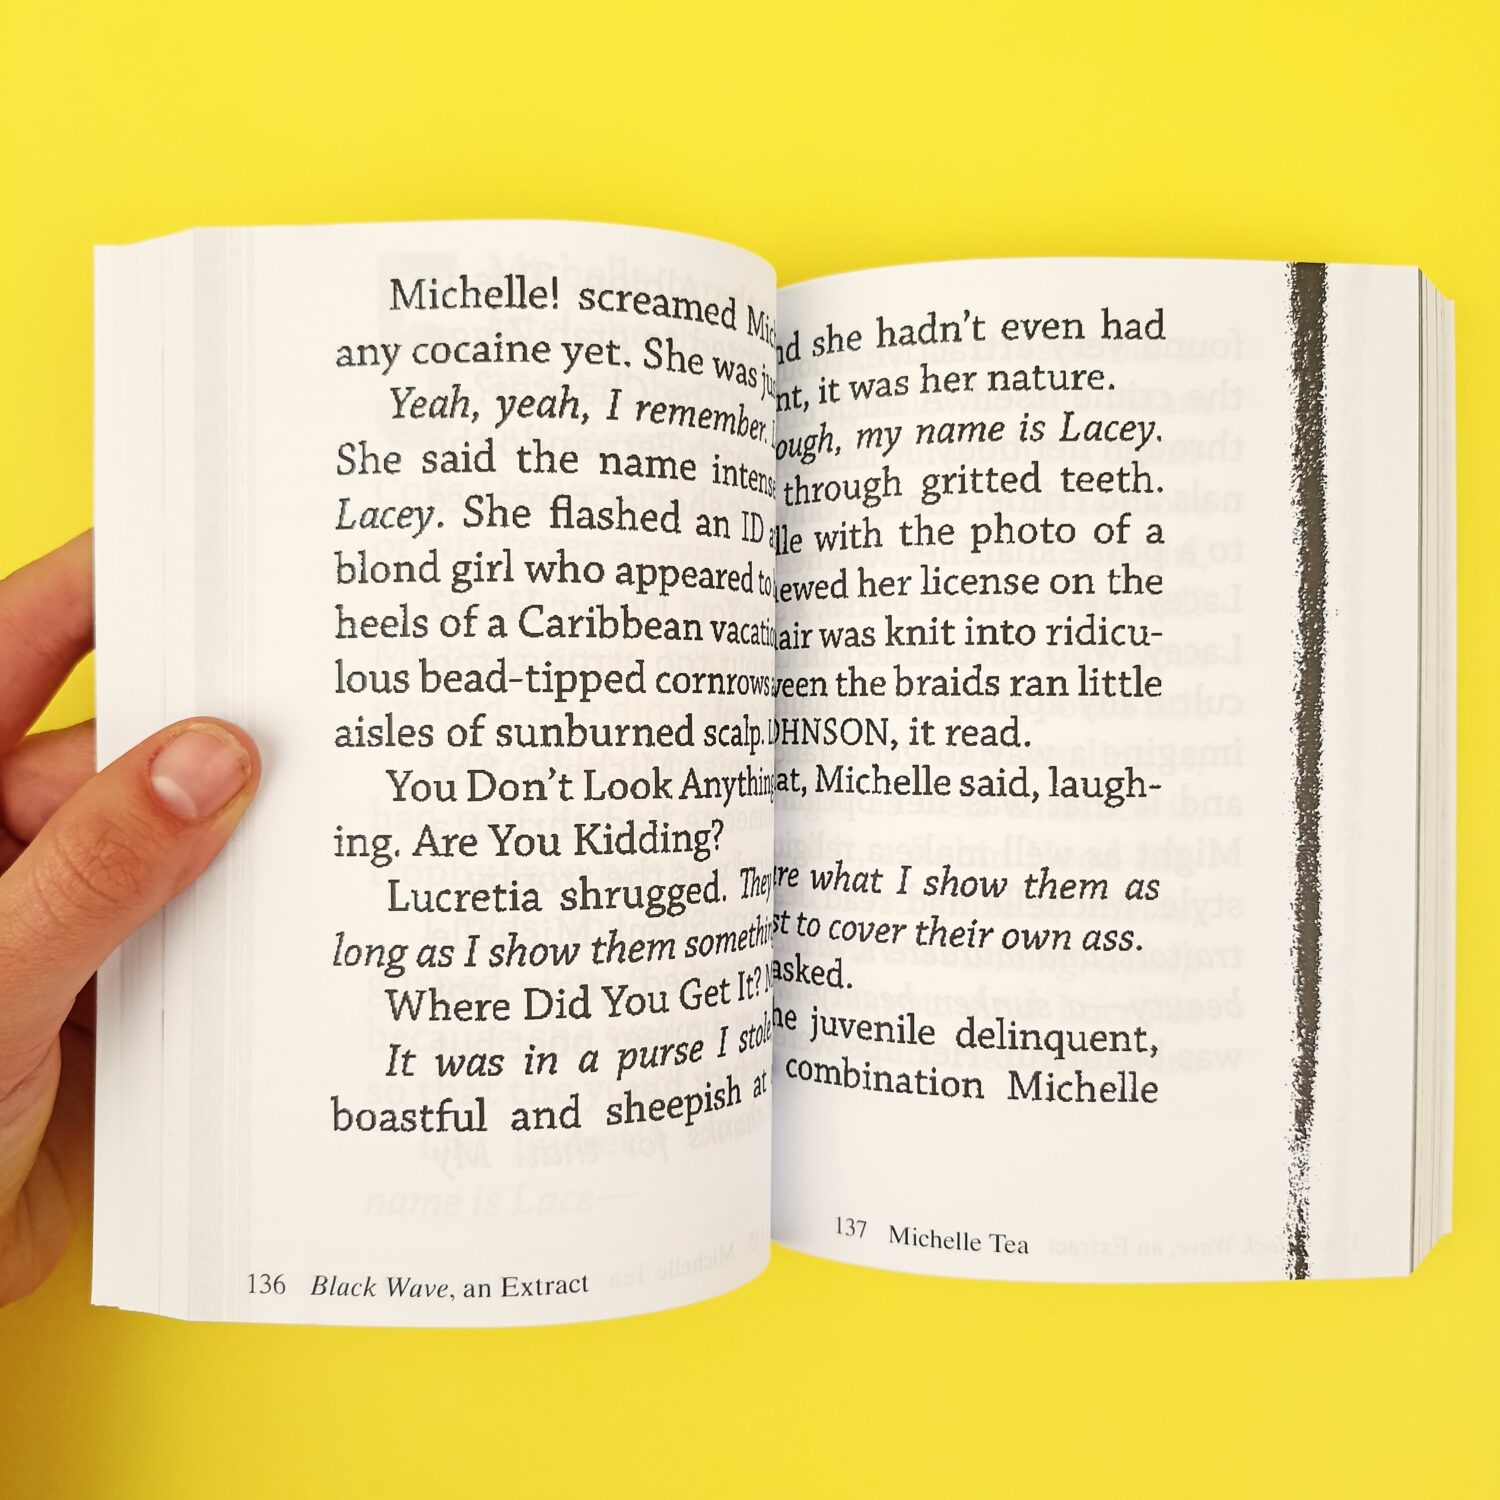 Michelle! screamed she hadn't even had
any cocaine yet. She was it was her nature.
Yeah, yeah, I remember. my name is Lacey.
She said the name through gritted teeth.
Lacey. She flashed an ID with the photo of a
blond girl who appeared to her license on the
heels of a Caribbean was knit into ridicu-
lous bead-tipped cornrows the braids ran little
aisles of sunburned scalp. it read.
You Don't Look Anything Michelle said, laugh-
ing. Are You Kidding?
Lucretia shrugged. They what I show them as
long as I show them something to cover their own ass.
Where Did You Get It? asked.
It was in a purse I stole juvenile delinquent,
boastful and sheepish at combination Michelle
136 Black Wave, an Extract
137 Michelle Tea